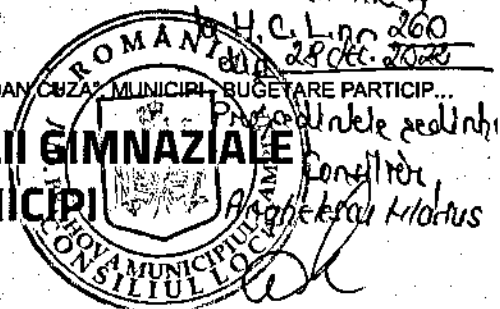 la H.C.L. nr. 260
din 28 Oct. 2022
OAN CUZA", MUNICIPI - BUGETARE PARTICIP...
Președintele ședinței
II GIMNAZIALE
Consilier
NICIPI
Marius
ROMÂNIA
MUNICIPIUL
CONSILIUL LOCAL